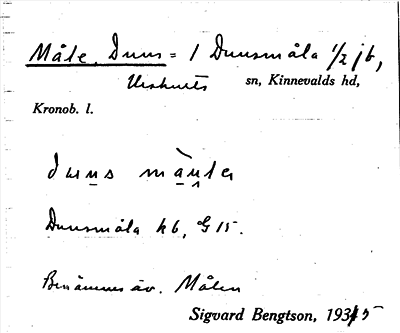 Måle, Duns = 1 Dunsmåla 1/2 jb,
Urshults sn, Kinnevalds hd,
Kronob. l.
Dunsmåla kb, G 15.
Benämnes äv. Målen
Sigvard Bengtson, 1935